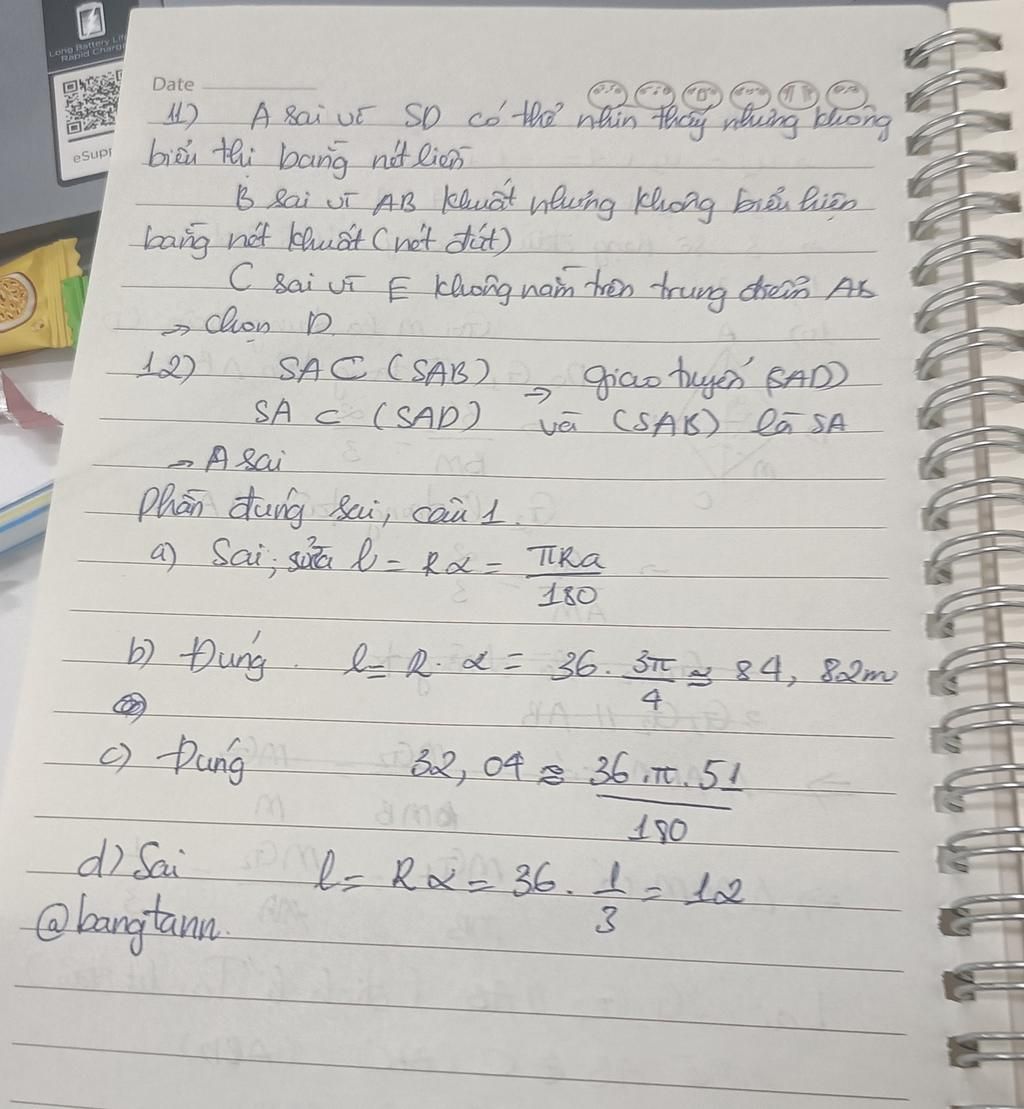 Long Battery Life
Rapid Charg
eSupp
Date
11) A sai vì SD có thể nhìn thấy nhưng không
biểu thị bằng nét liền
B sai vì AB khuất nhưng không biểu hiện
bằng nét khuất (nét đứt)
C sai vì E không nằm trên trung điểm AB
⇒ Chọn D
12) SA ⊂ (SAB) ⇒ giao tuyến (SAD)
SA ⊂ (SAD) và (SAB) là SA
→ A sai
Phần đúng sai, câu 1.
a) Sai; sửa l = Rα = πRa/180
b) Đúng. l = R. α = 36. 3π/4 ≈ 84, 82m
c) Đúng 32, 04 ≈ 36.π.51/180
d) Sai l = Rα = 36. 1/3 = 12
@bangtann.